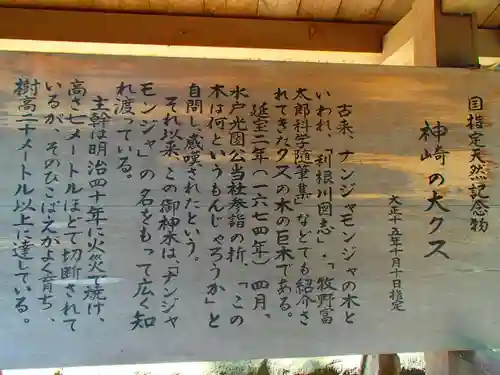 国指定天然記念物
神崎の大クス
大正十五年十月十日指定
古来、ナンジャモンジャの木と
いわれ、「利根川図志」・「牧野富
太郎科学随筆集」などでも紹介さ
れてきたクスの木の巨木である。
延宝二年(一六七四年)四月、
水戸光圀公当社参詣の折、「この
木は何というもんじゃろうか」と
自問し、感嘆されたという。
それ以来、この御神木は「ナンジャ
モンジャ」の名をもって広く知
れ渡っている。
主幹は明治四十年に火災で焼け、
高さ七メートルほどで切断されて
いるが、そのひこばえがよく育ち、
樹高二十メートル以上に達している。